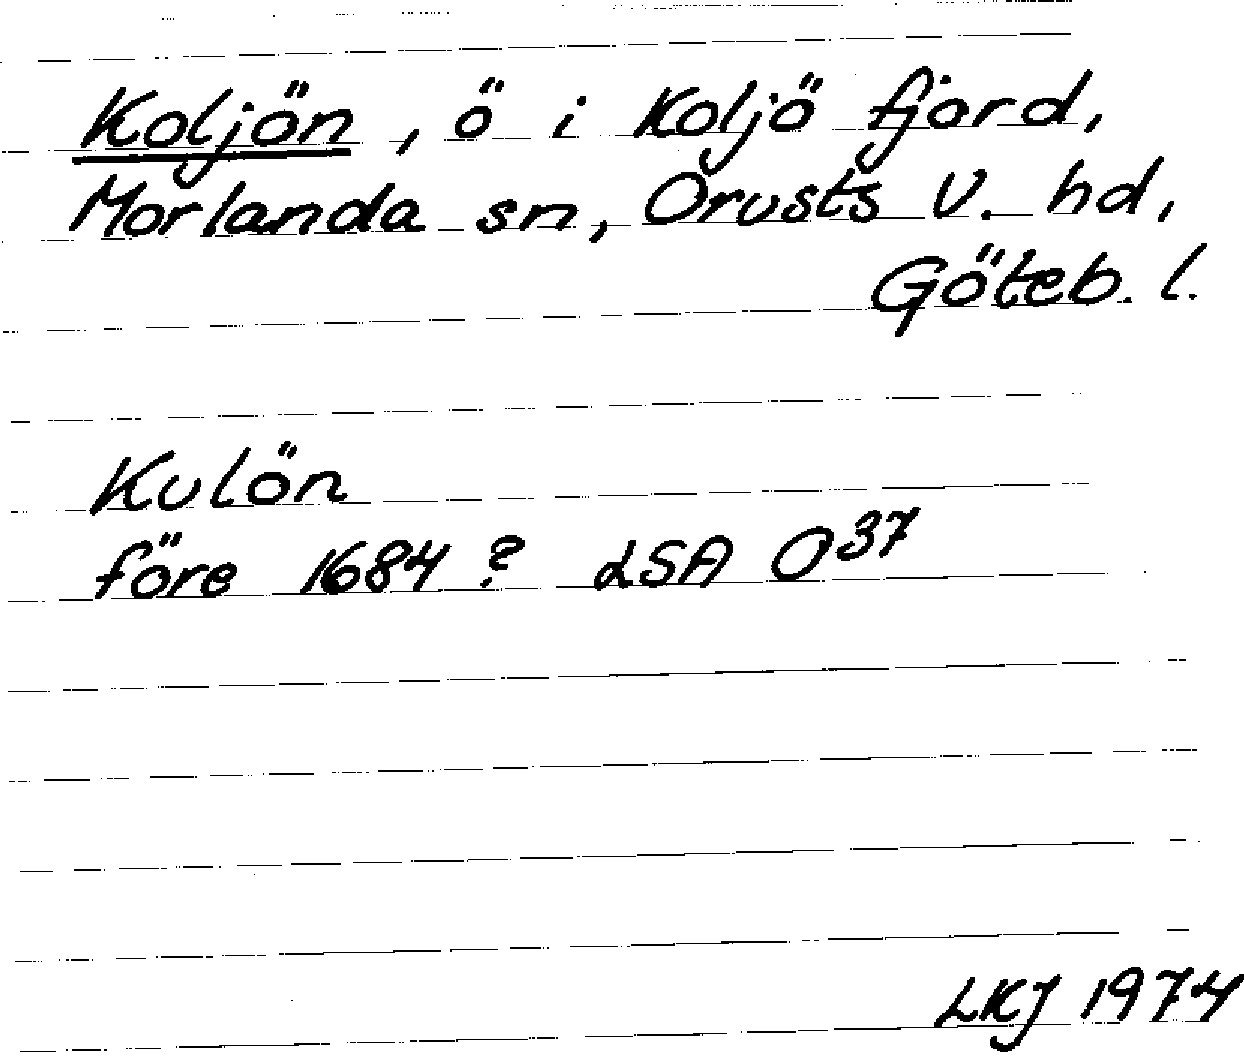 Koljön, ö i Koljö fjord,
Morlanda sn, Orusts V. hd,
Göteb. l.
Kulön
före 1684? LSA O37
LKJ 1974